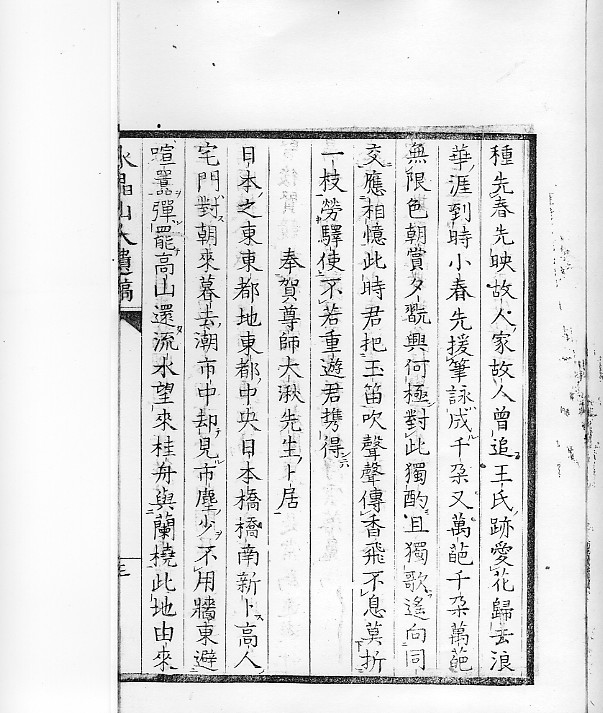 種先春先映故人家故人曾追王氏跡愛花歸去浪
華涯到時小春先援筆詠成千朶又萬葩千朶萬葩
無限色朝賞夕翫興何極對此獨酌且獨歌遙向同
交應相憶此時君把玉笛吹聲聲傳香飛不息莫折
一枝勞驛使不若重遊君携得
奉賀尊師大湫先生卜居
日本之東東都地東都中央日本橋橋南新卜高人
宅門對朝來暮去潮市中却見市塵少不用牆東避
喧囂彈罷高山還流水望來桂舟與蘭橈此地由來
水晶山人遺稿